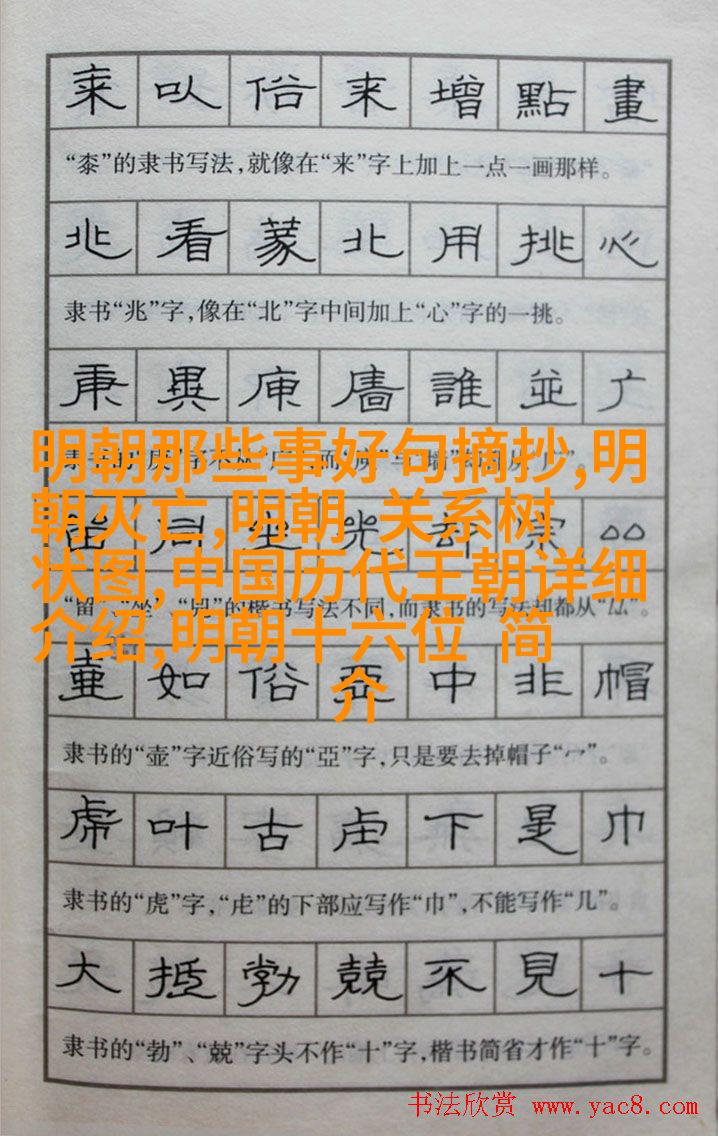 桼以俗来增點畫
“桼”的隶书写法,就像在“来”字上加上一点一画那样。
兆看蒙北用挑心
隶书“兆”字,像在“北”字中间加上“心”字的一挑。
庚異庫廧誰並广
明朝那些事好句摘抄,明
朝灭亡,明朝 关系树
状图,中国历代王朝详细
介绍,明朝十六位 简
介
同坐 却宗
的楷书写法不同,而隶书的写法却都从“厸”。
壷如俗亞中非帽
隶书的“壶”字近俗写的“亞”字,只是要去掉帽子“冖”。
虎叶古虍下是巾
隶书的“虎”字,“虍”的下部应写作“巾”,不能写作“几”。
大抵勃兢不見十
隶书的“勃”、“兢”字头不作“十”字,楷书简省才作“十”字。
书法欣赏 www.yac8.com